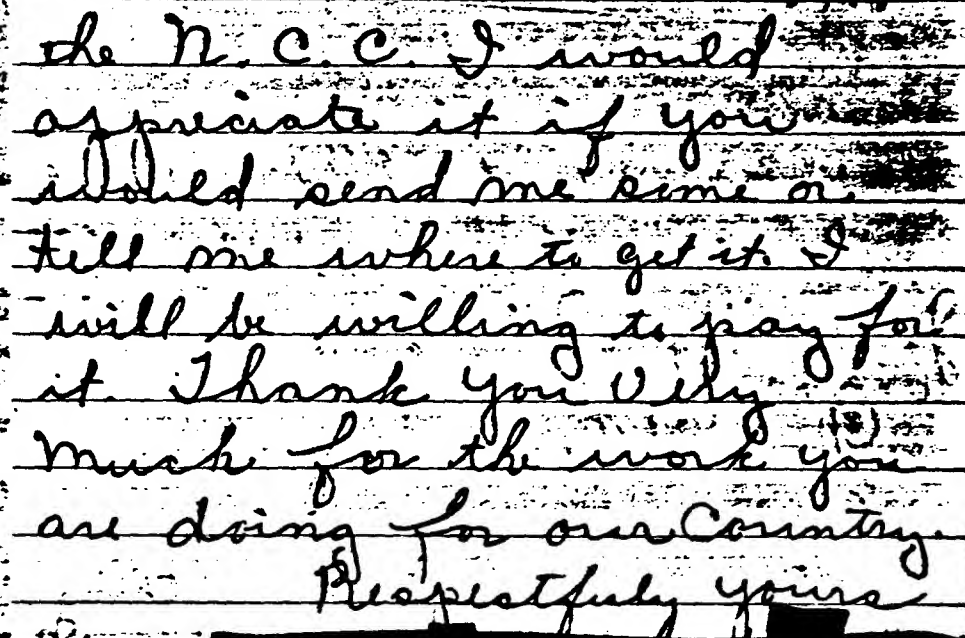 the N. C. C. I would
appreciate it if you
would send me some or
tell me where to get it. I
will be willing to pay for
it. Thank you Very
Much for the work you
are doing for our Country.
Respestfuly yours